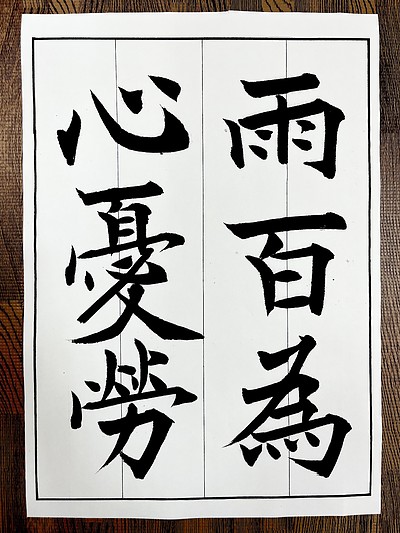 雨百為
心憂勞